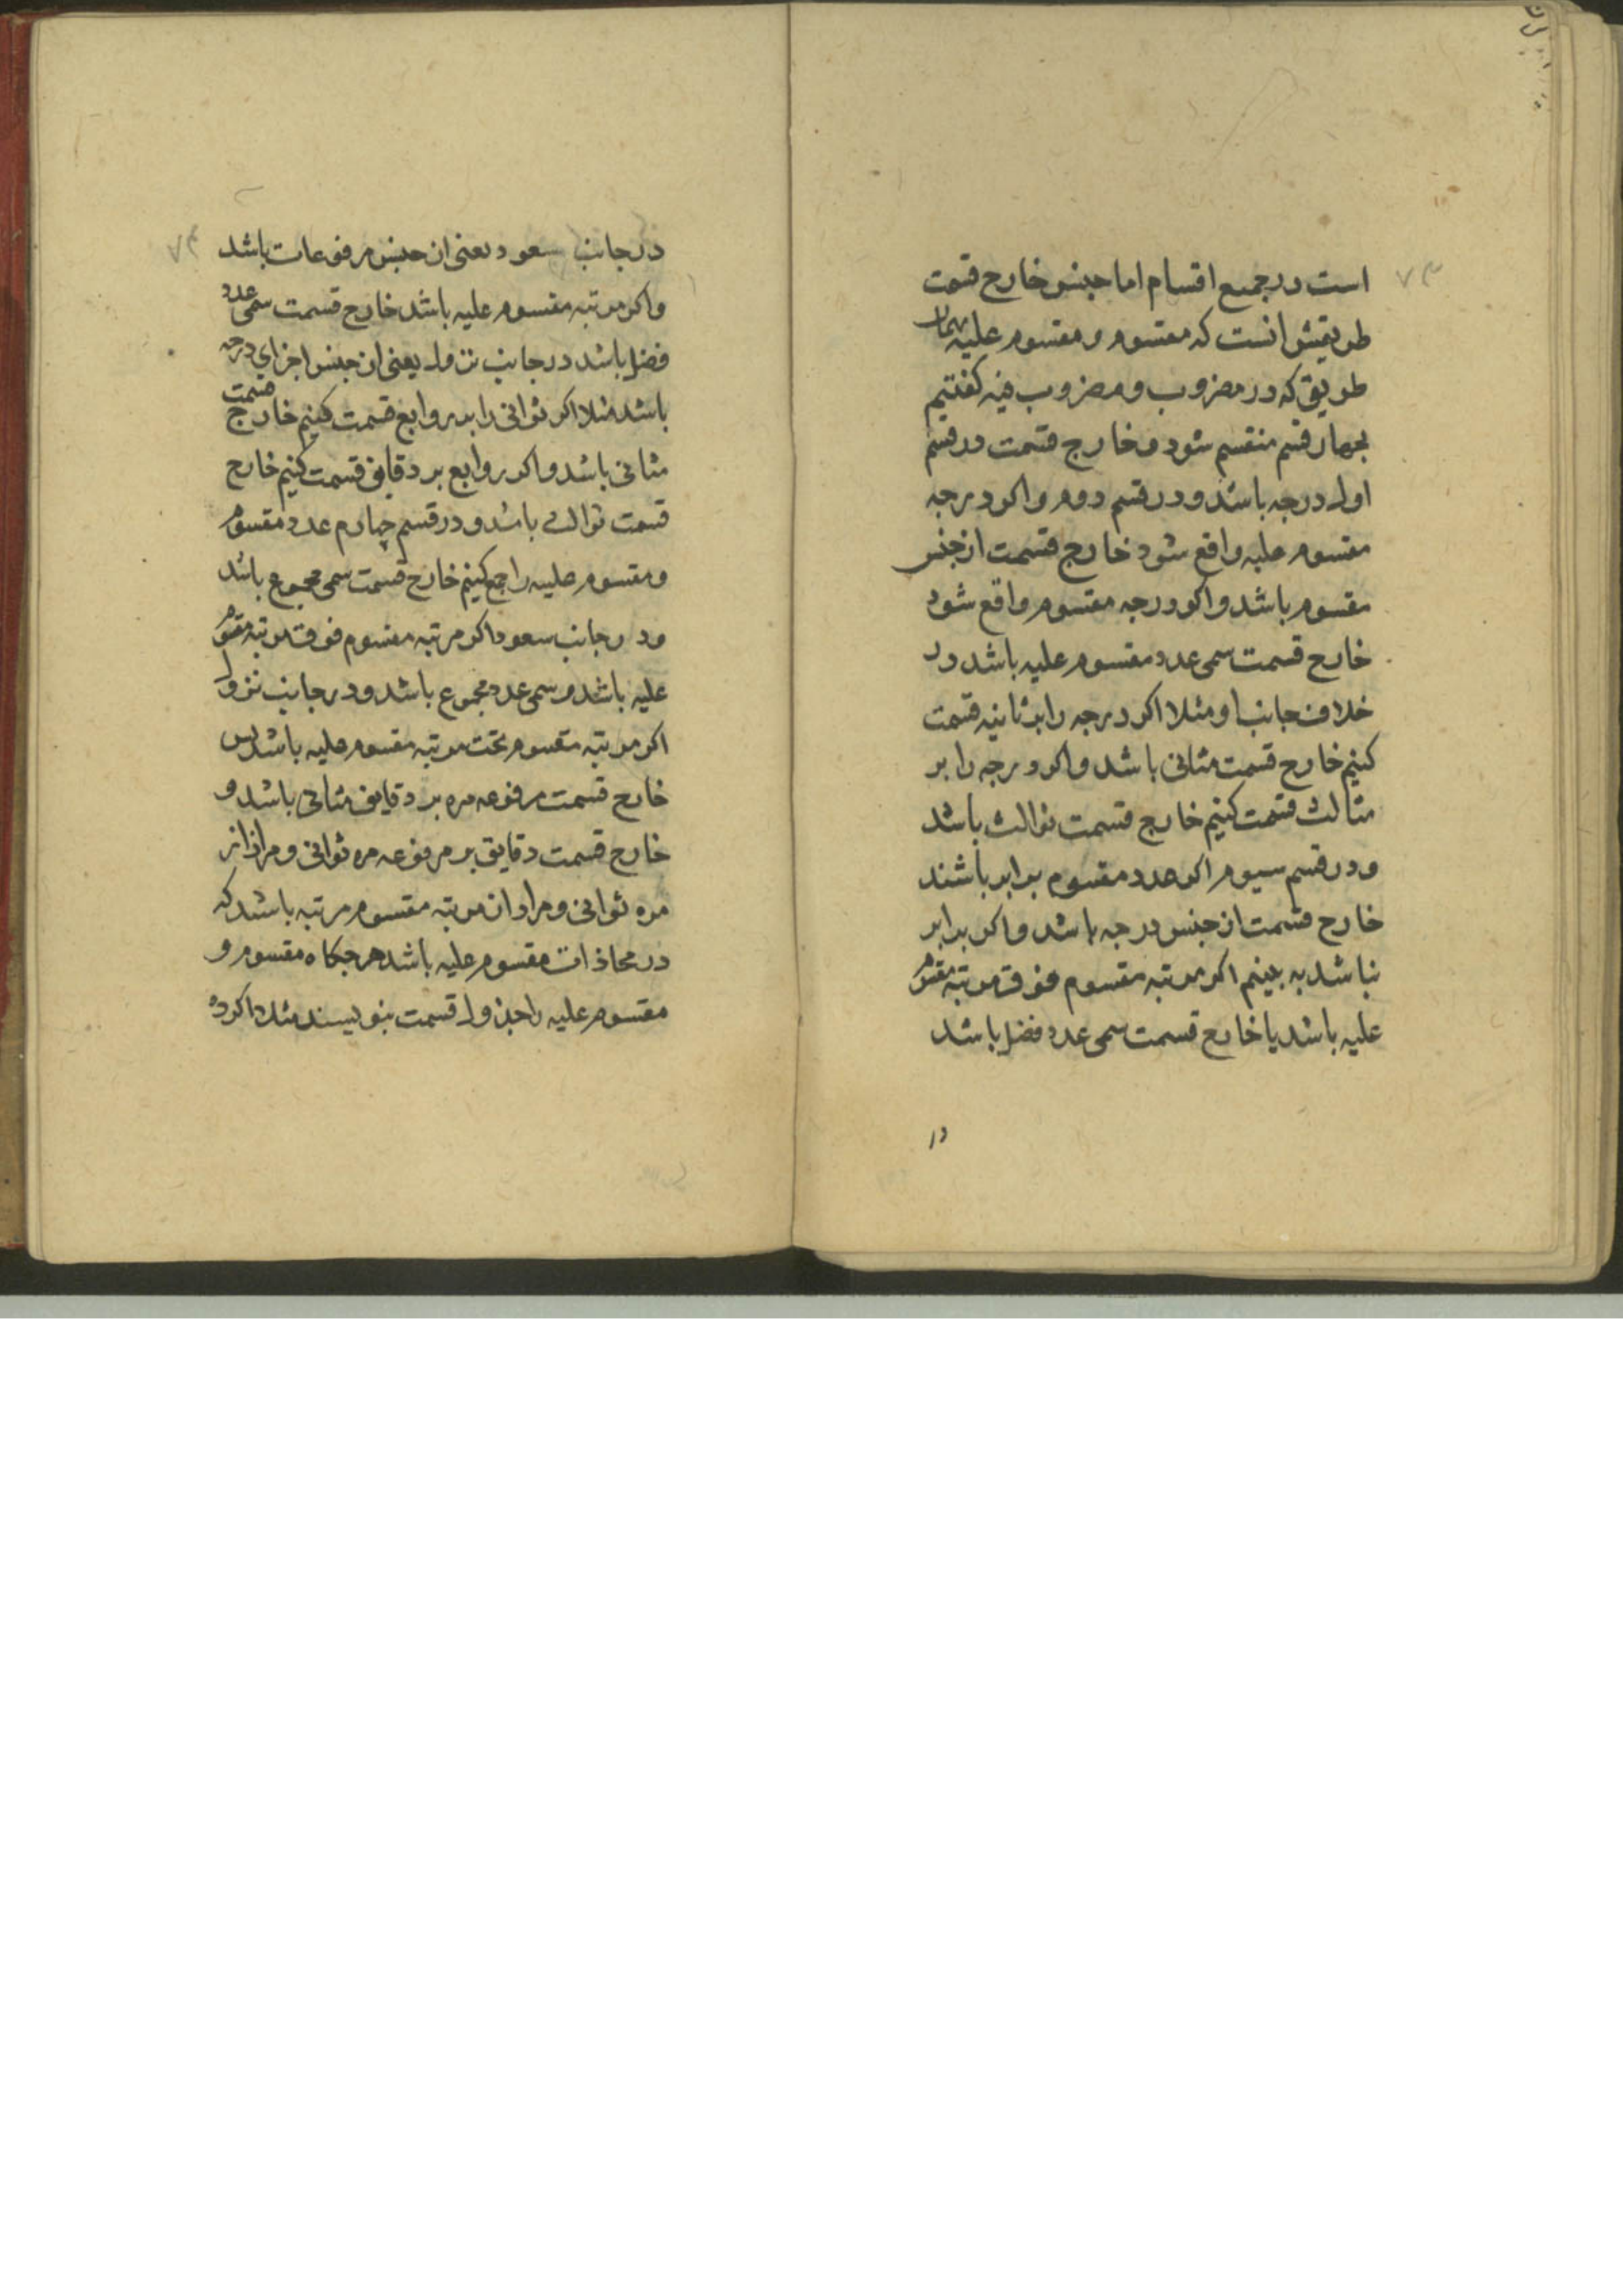 است در جمیع اقسام اما جنس خارج قسمت
طریقش انست که مقسوم و مقسوم علیه بهمان
طریق که در مضروب و مضروب فیه کفتیم
بچهار قسم منقسم شود و خارج قسمت در قسم
اول درجه باشد و در قسم دوم واکر درجه
مقسوم علیه واقع شود خارج قسمت از جنس
مقسوم باشد واکر درجه مقسوم واقع شود
خارج قسمت سمی عدد مقسوم علیه باشد در
خلاف جانب او مثلا اکر درجه را بر ثانیه قسمت
کنیم خارج قسمت مثانی باشد واکر درجه را بر
مثالث قسمت کنیم خارج قسمت ثوالث باشد
و در قسم سیوم اکر عدد مقسوم برابر باشند
خارج قسمت از جنس درجه باشد واکر برابر
نباشد به بینیم اکر مرتبه مقسوم فوق مرتبه مقسوم
علیه باشد یا خارج قسمت سمی عدد فضل باشد
در
۷۳
در جانب سعود یعنی از جنس مرفوعات باشد
واکر مرتبه مقسوم علیه باشد خارج قسمت سمی عدد
فضل باشد در جانب نزول یعنی از جنس اجزای درجه
باشد مثلا اکر ثوانی را بر روابع قسمت کنیم خارج قسمت
مثانی باشد واکر روابع بر دقایق قسمت کنیم خارج
قسمت ثوالث باشد و در قسم چهارم عدد مقسوم
و مقسوم علیه را جمع کنیم خارج قسمت سمی مجموع باشد
و در جانب سعود اکر مرتبه مقسوم فوق مرتبه مقسوم
علیه باشد و سمی عدد مجموع باشد و در جانب نزول
اکر مرتبه مقسوم تحت مرتبه مقسوم علیه باشد پس
خارج قسمت مرفوعه مره بر دقایق مثانی باشد و
خارج قسمت دقایق بر مرفوعه مره ثوانی و مراد از
مره ثوانی و مراد از مرتبه مقسوم مرتبه باشد که
در محاذات مقسوم علیه باشد هر جکاه مقسوم و
مقسوم علیه را جدول قسمت بنویسند مثلا اکر ده